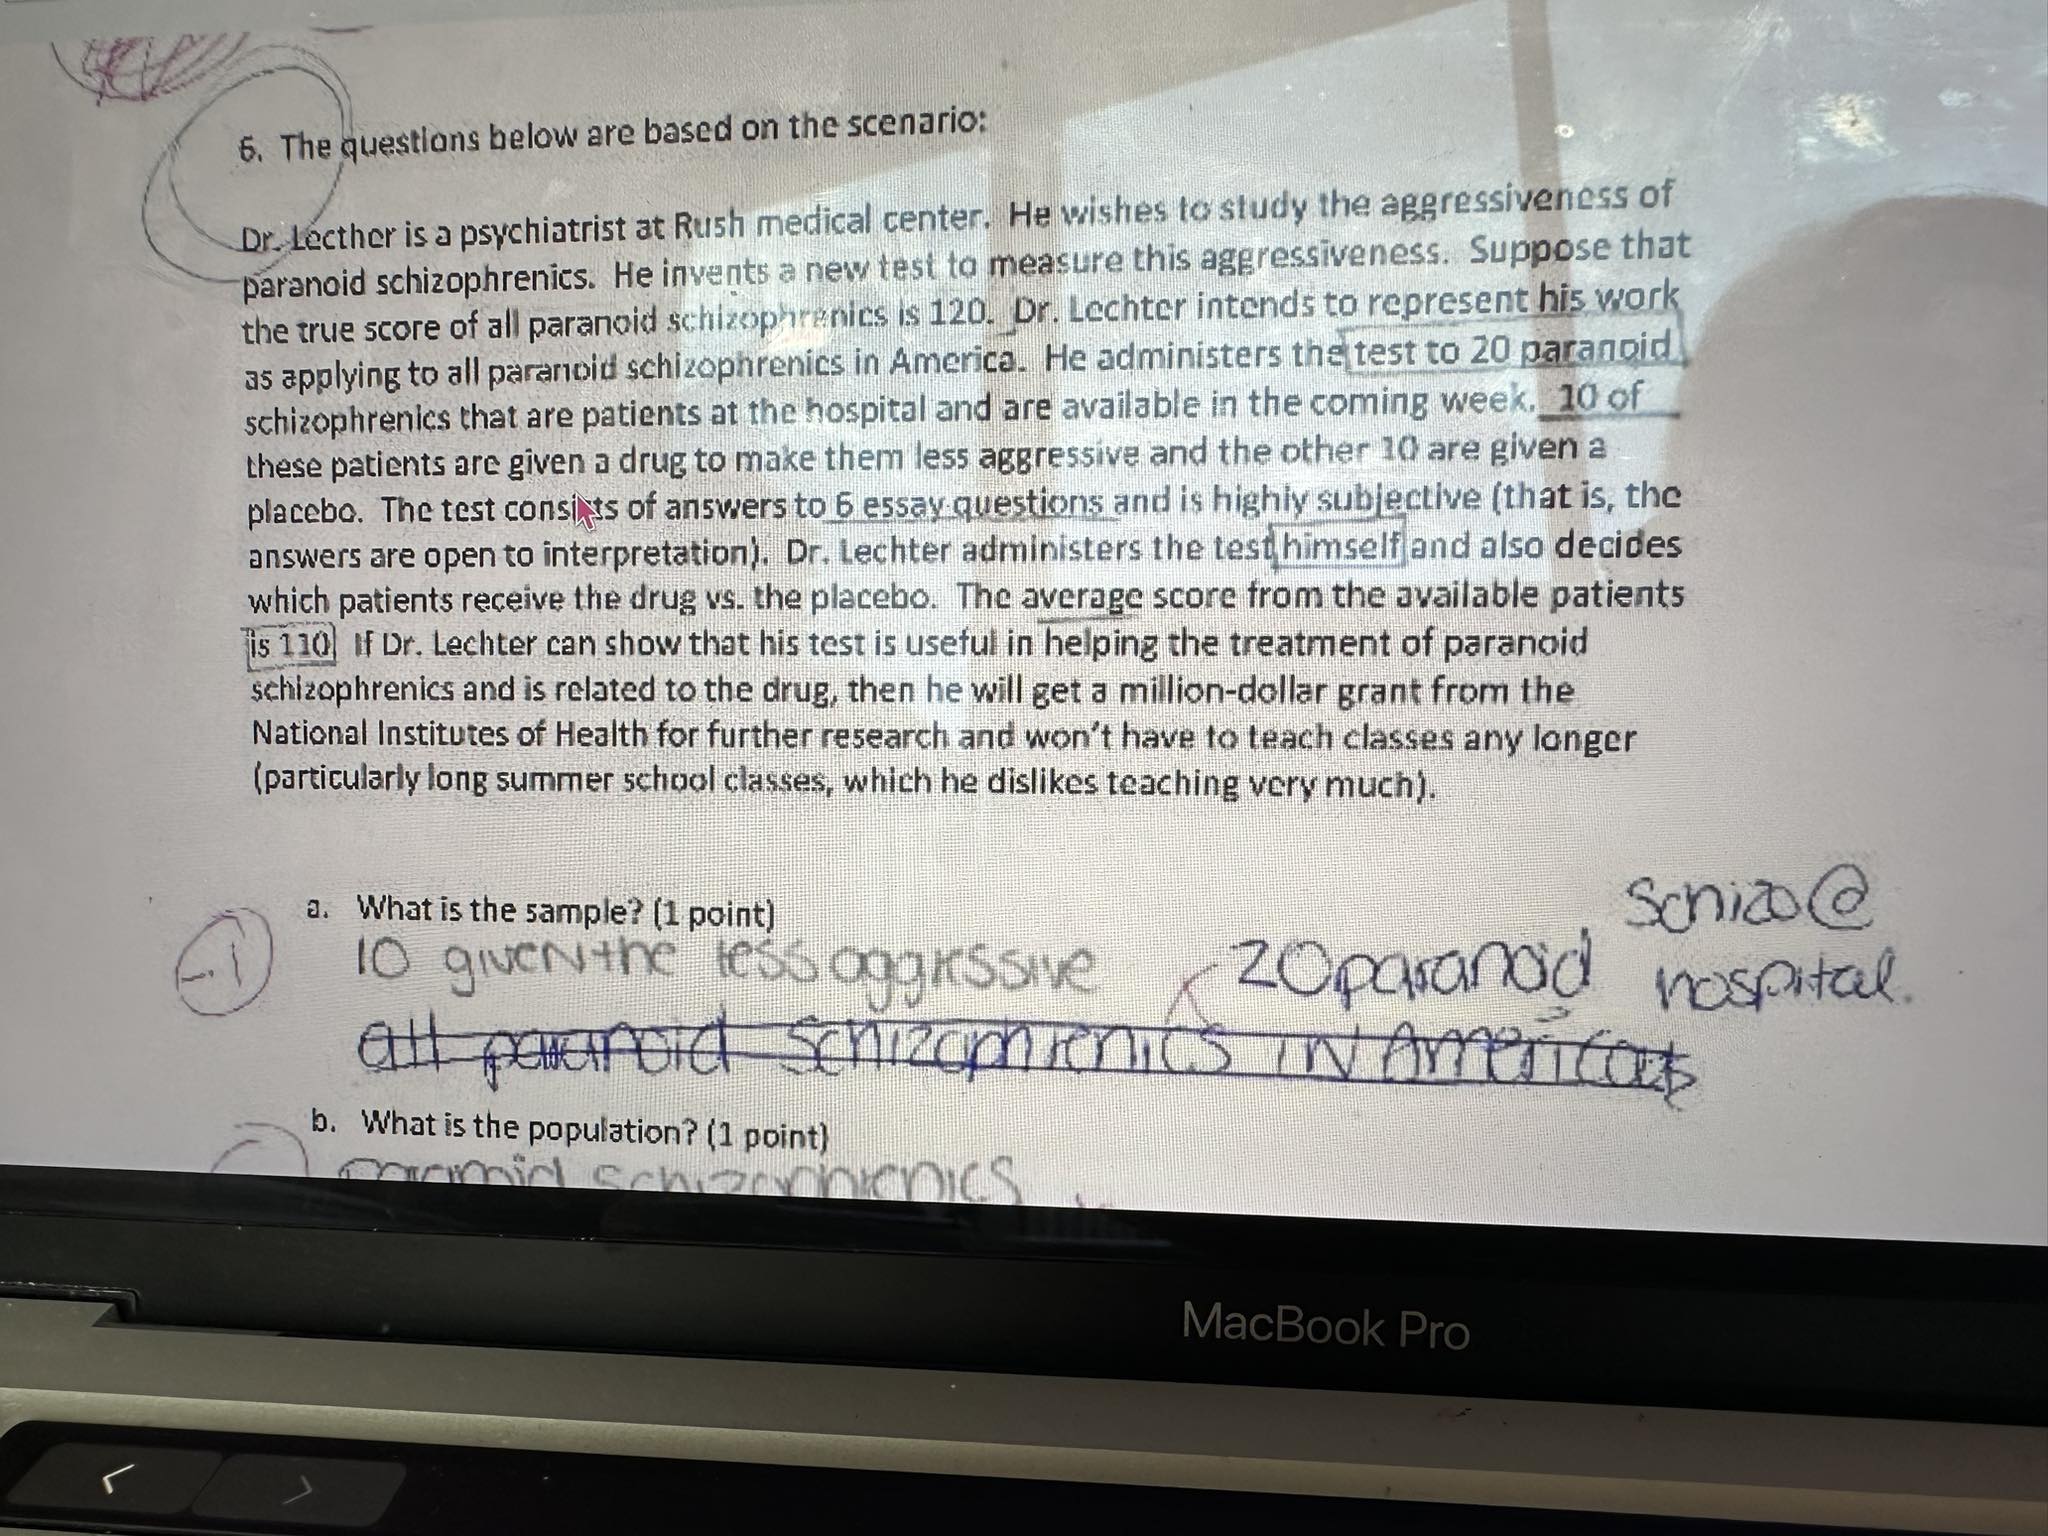 6. The questions below are based on the scenario:
Dr. Lecther is a psychiatrist at Rush medical center. He wishes to study the aggressiveness of
paranoid schizophrenics. He invents a new test to measure this aggressiveness. Suppose that
the true score of all paranoid schizophrenics is 120. Dr. Lechter intends to represent his work
as applying to all paranoid schizophrenics in America. He administers the test to 20 paranoid
schizophrenics that are patients at the hospital and are available in the coming week. 10 of
these patients are given a drug to make them less aggressive and the other 10 are given a
placebo. The test consists of answers to 6 essay questions and is highly subjective (that is, the
answers are open to interpretation). Dr. Lechter administers the test himself and also decides
which patients receive the drug vs. the placebo. The average score from the available patients
is 110. If Dr. Lechter can show that his test is useful in helping the treatment of paranoid
schizophrenics and is related to the drug, then he will get a million-dollar grant from the
National Institutes of Health for further research and won't have to teach classes any longer
(particularly long summer school classes, which he dislikes teaching very much).
a. What is the sample? (1 point)
-1
10 given the less aggressive
20 paranoid
schizo @
hospital.
all paranoid schizophrenics in
b. What is the population? (1 point)
paranoid schizophrenics
MacBook Pro